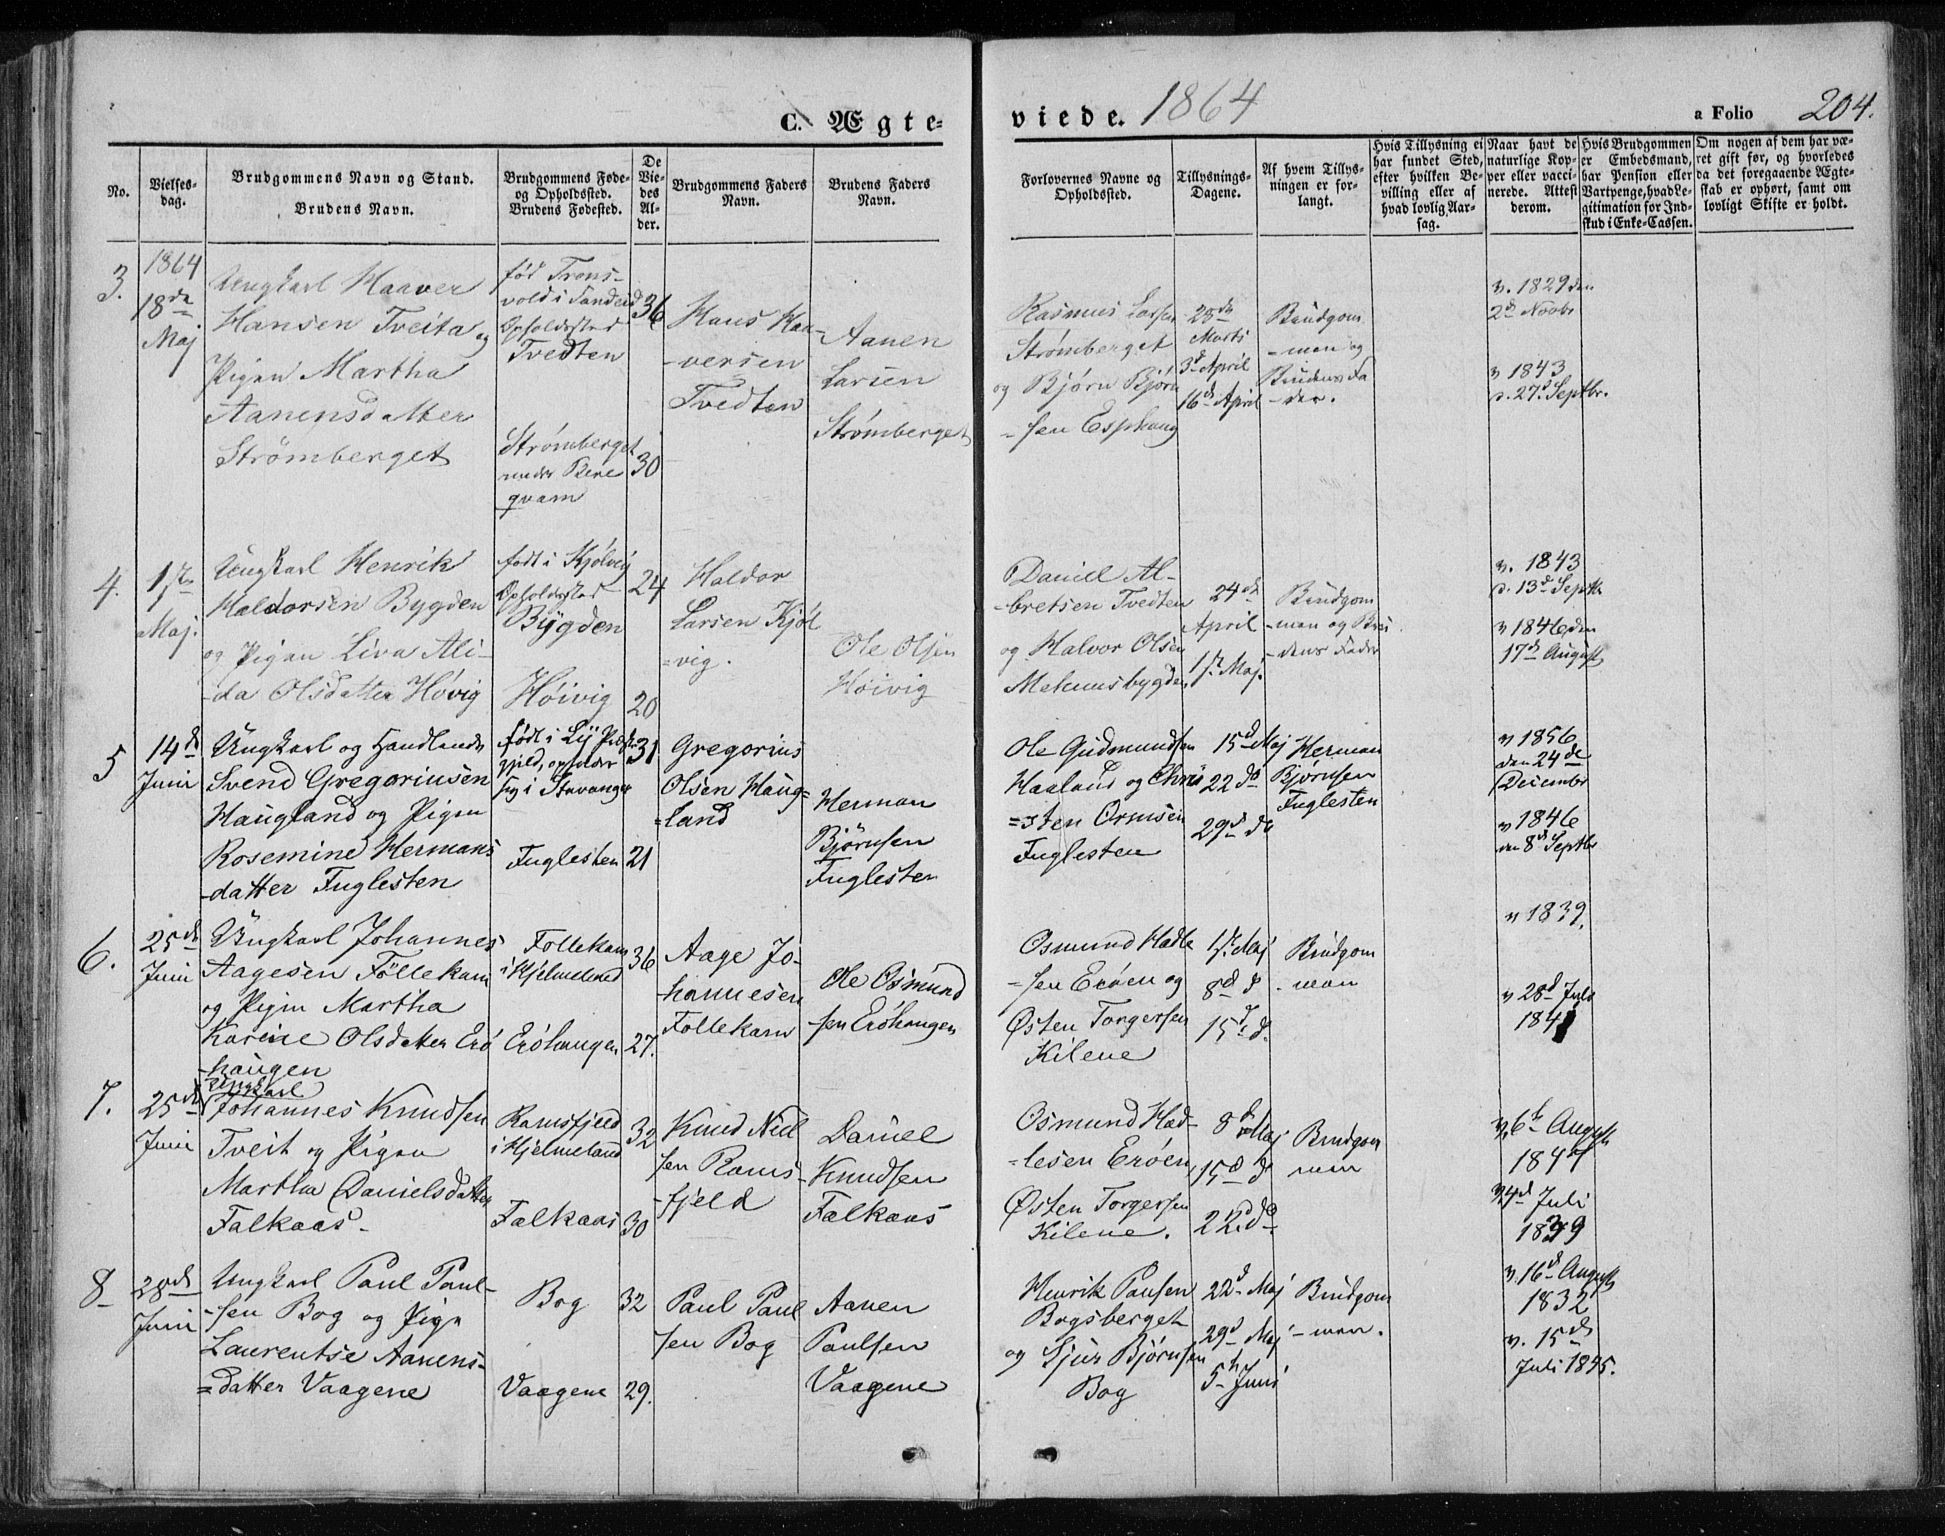 C. Ægte-
viede. 1864
a Folio 204.
No.
Vielses-
dag.
Brudgommens Navn og Stand.
Brudens Navn.
Brudgommens Føde-
og Opholdssted.
Brudens Fødested.
De
Vie-
des
Al-
der.
Brudgommens Faders
Navn.
Brudens Faders
Navn.
Forlovernes Navne og
Opholdssted.
Tillysnings-
Dagene.
Af hvem Tillys-
ningen er for-
langt.
Hvis Tillysning ei
har fundet Sted,
efter hvilken Be-
villing eller af
hvad lovlig Aar-
sag.
Naar havt de
naturlige Kop-
per eller vacci-
nerede. Attest
derom.
Hvis Brudgommen
er Embedsmand,
har Pension eller
Vartpenge, hvad Le-
gitimation for Ind-
skud i Enke-Cassen.
Om nogen af dem har væ-
ret gift før, og hvorledes
da det foregaaende Ægte-
skab er ophørt, samt om
lovligt Skifte er holdt.
3.
1864
18de
Maj
Ungkarl Haaver
Hansen Tveita og
Pigen Martha
Aanensdatter
Strømberget
fød Trons-
vold i Sandeid
Opholdssted
Tvedten
Strømberget
under Bere
qvam
36
30
Hans Haa-
-versen
Tvedten
Aanen
Larsen
Strømberget
Rasmus Larsen
Strømberget
og Bjørn Bjørn
-sen Esphaug
28de
Marts
3d April
16d April
Brudgom
-men og
Brudens Fa
-der.
v. 1829 den
2d Novbr
v 1843
d. 27d Septbr.
4.
1ste
Maj.
Ungkarl Henrik
Haldorsen Bygden
og Pigen Liva Ali-
-da Olsdatter Høvig
født i Kjølvig
Opholdssted
Bygden
Høivig
24
20
Haldor
Larsen Kjøl
-vig.
Ole Olsen
Høivig
Daniel Al-
-bretsen Tvedten
og Halvor Olsen
Mehuusbygden
24de
April
1ste Maj.
Brudgom
-men og Bru
-dens Fader
v. 1843
d. 13d Septbr
v 1846 den
17d August
5
14d
Juni
Ungkarl og Handlende
Svend Gregoriusen
Haugland og Pigen
Rosemine Hermans
-datter Fuglesten
født i Lÿ Præste
gjeld, opholder
sig i Stavanger
Fuglesten
31
21
Gregorius
Olsen Haug=
=land
Herman
Bjørnsen
Fuglesten
Ole Gudmundsen
Haaland og Chri
=sten Ormsen
Fuglesten
15d Maj
22 do
29d do
Herman
Bjørnsen
Fuglesten
v 1856
den 24de
December
v 1846
den 8d Septbr
6.
25de
Juni
Ungkarl Johannes
Aagesen Føllekam
og Pigen Martha
Karine Olsdatter Erø
-haugen
Follekam
i Hjelmeland
Erøhaugen
36
27.
Aage Jo-
-hannesen
Follekam
Ole Osmund
sen Erøhaugen
Osmund Hadle
-sen Erøen og
Østen Torgersen
Kilene
1ste Maj
8d d
15d d.
Brudgom
-men
v 1839.
v 28d Juli
184
7.
25de
Juni
Ungkarl
Johannes Knudsen
Tveit og Pigen
Martha Danielsdatter
Falkaas
Ramsfjeld
i Hjelmeland
Falkaas
32
30
Knud Niel
sen Rams-
-fjeld
Daniel
Knudsen
Falkaas
Osmund Had-
-lesen Erøen
Østen Torgersen
Kilene.
8d Maj
15d d
22d do
Brudgom
men
v. 6te August
184
v 4d Juli
1839
8
28de
Juni
Ungkarl Paul Paul-
-sen Bog og Pige
Laurentse Aanens-
=datter Vaagene
Bog
Vaagene
32
29.
Paul Paul
sen Bog
Aanen
Paulsen
Vaagene
Henrik Paulsen
Bogsberget
og Sjur Bjørnsen
Bog
22d Maj
29d Maj
5te Juni
Brudgom
-men.
v. 16d August
1832
v. 15de
Juli 1845.